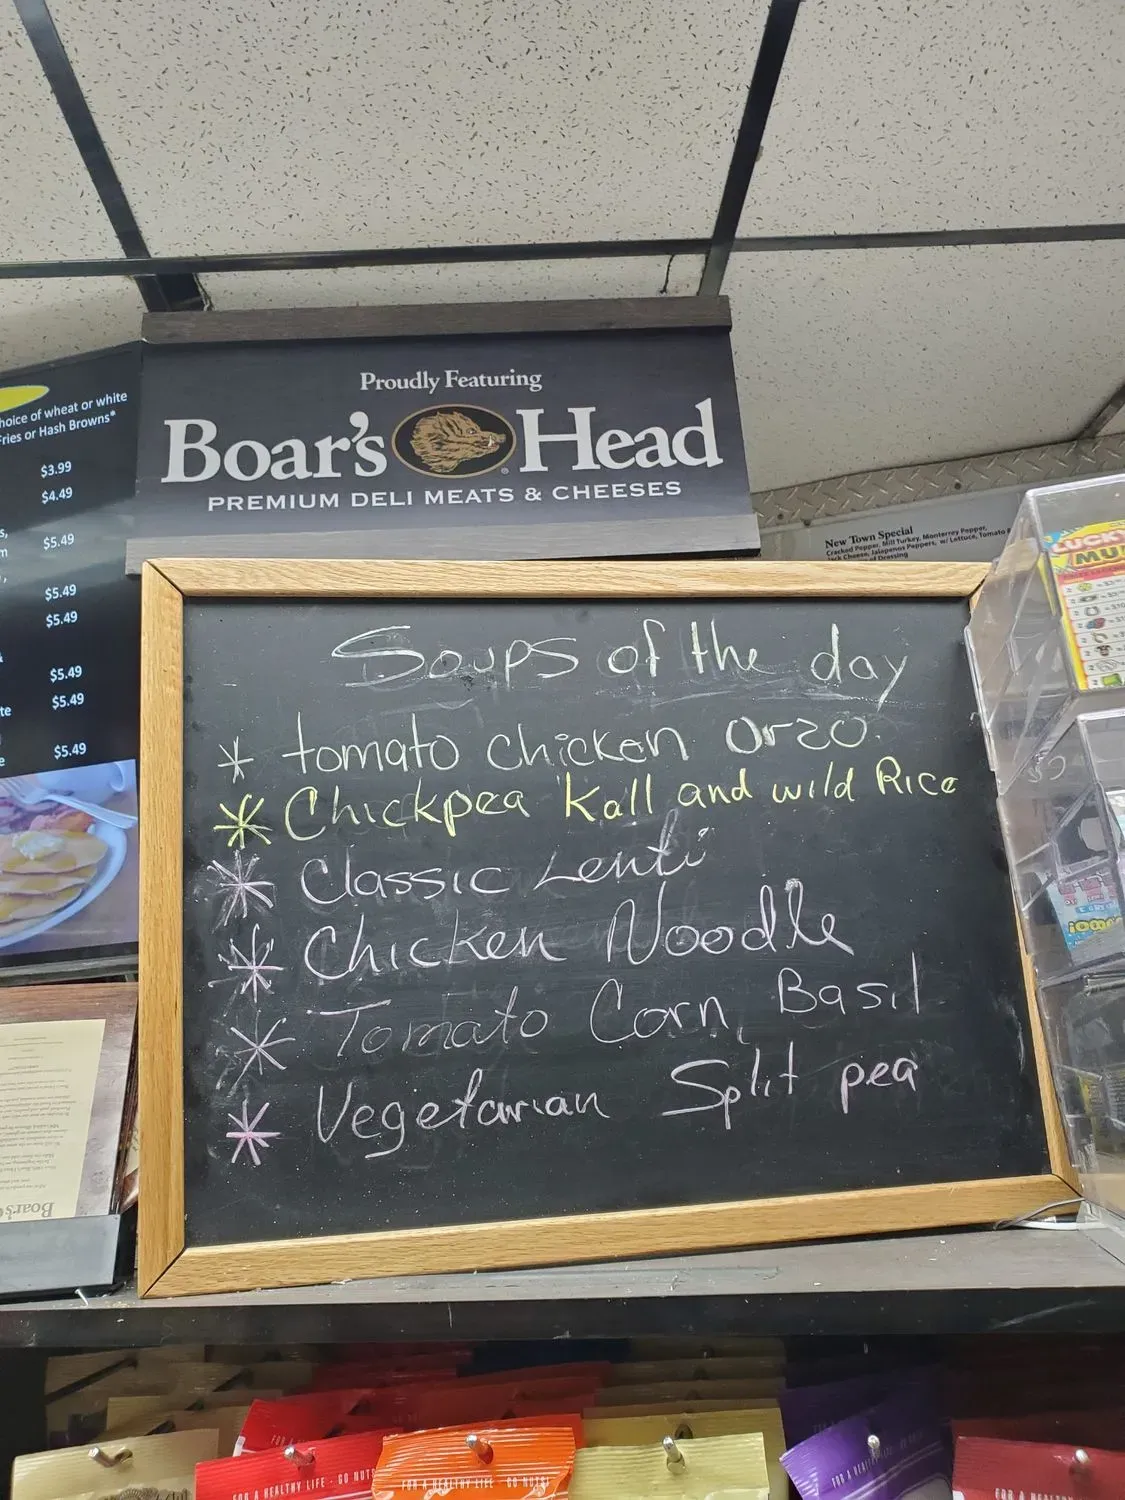 Proudly Featuring
Boar's Head
PREMIUM DELI MEATS & CHEESES
hoice of wheat or white
Fries or Hash Browns*
$3.99
$4.49
$5.49
$5.49
$5.49
$5.49
$5.49
$5.49
New Town Special
Cracked Pepper Mill Turkey, Monterrey Pepper
Jack Cheese, Jalapenos Peppers, w/ Lettuce, Tomato
of Dressing
LUCKY
MU
Soups of the day
* tomato chicken orzo.
* Chickpea Kall and wild Rice
* Classic Lenti
* Chicken Noodle
* Tomato Corn, Basil
* Vegetarian Split pea
Boar's
FOR A HEALTHY LIFE - GO NUTS
FOR A HEALTHY LIFE - GO NUTS!
FOR A HEALTHY LIFE
FOR A HEALTHY LIFE